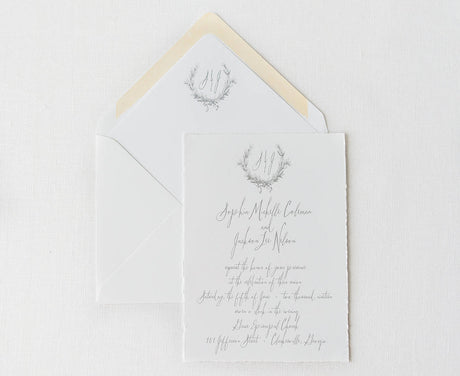 Sophia Michelle Coleman
and
Jackson Lee Nelson
request the honor of your presence
at the celebration of their union
Saturday, the fifth of June two thousand,
o'clock in the evening
Grace Episcopal Church
Jefferson Street Clarkesville, Georgia